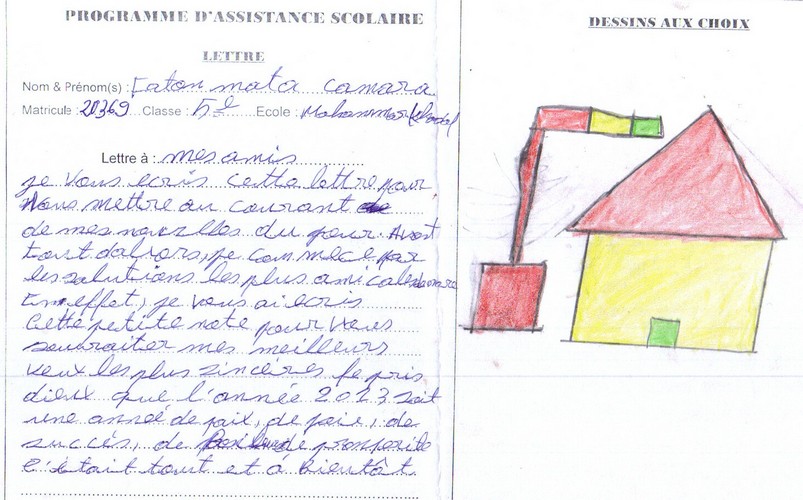 PROGRAMME D'ASSISTANCE SCOLAIRE
LETTRE
Nom & Prénom(s) : Fatoumata camara
Matricule : 20369 Classe : 5è Ecole : Mohammar
Lettre à : mes amis
je vous ecris cette lettre pour
vous mettre au courant
de mes novelles du jour. Avant
tout dabors, je commece par
les salutions les plus amicales
En effet, je vous ai ecris
Cette petite note pour vous
souvraiter mes meilleurs
veux les plus sinceres je pris
dieux que l'année 2013 soit
une année de paix, de joie, de
succés, de prosperite
c'était tout et à bientôt.
DESSINS AUX CHOIX